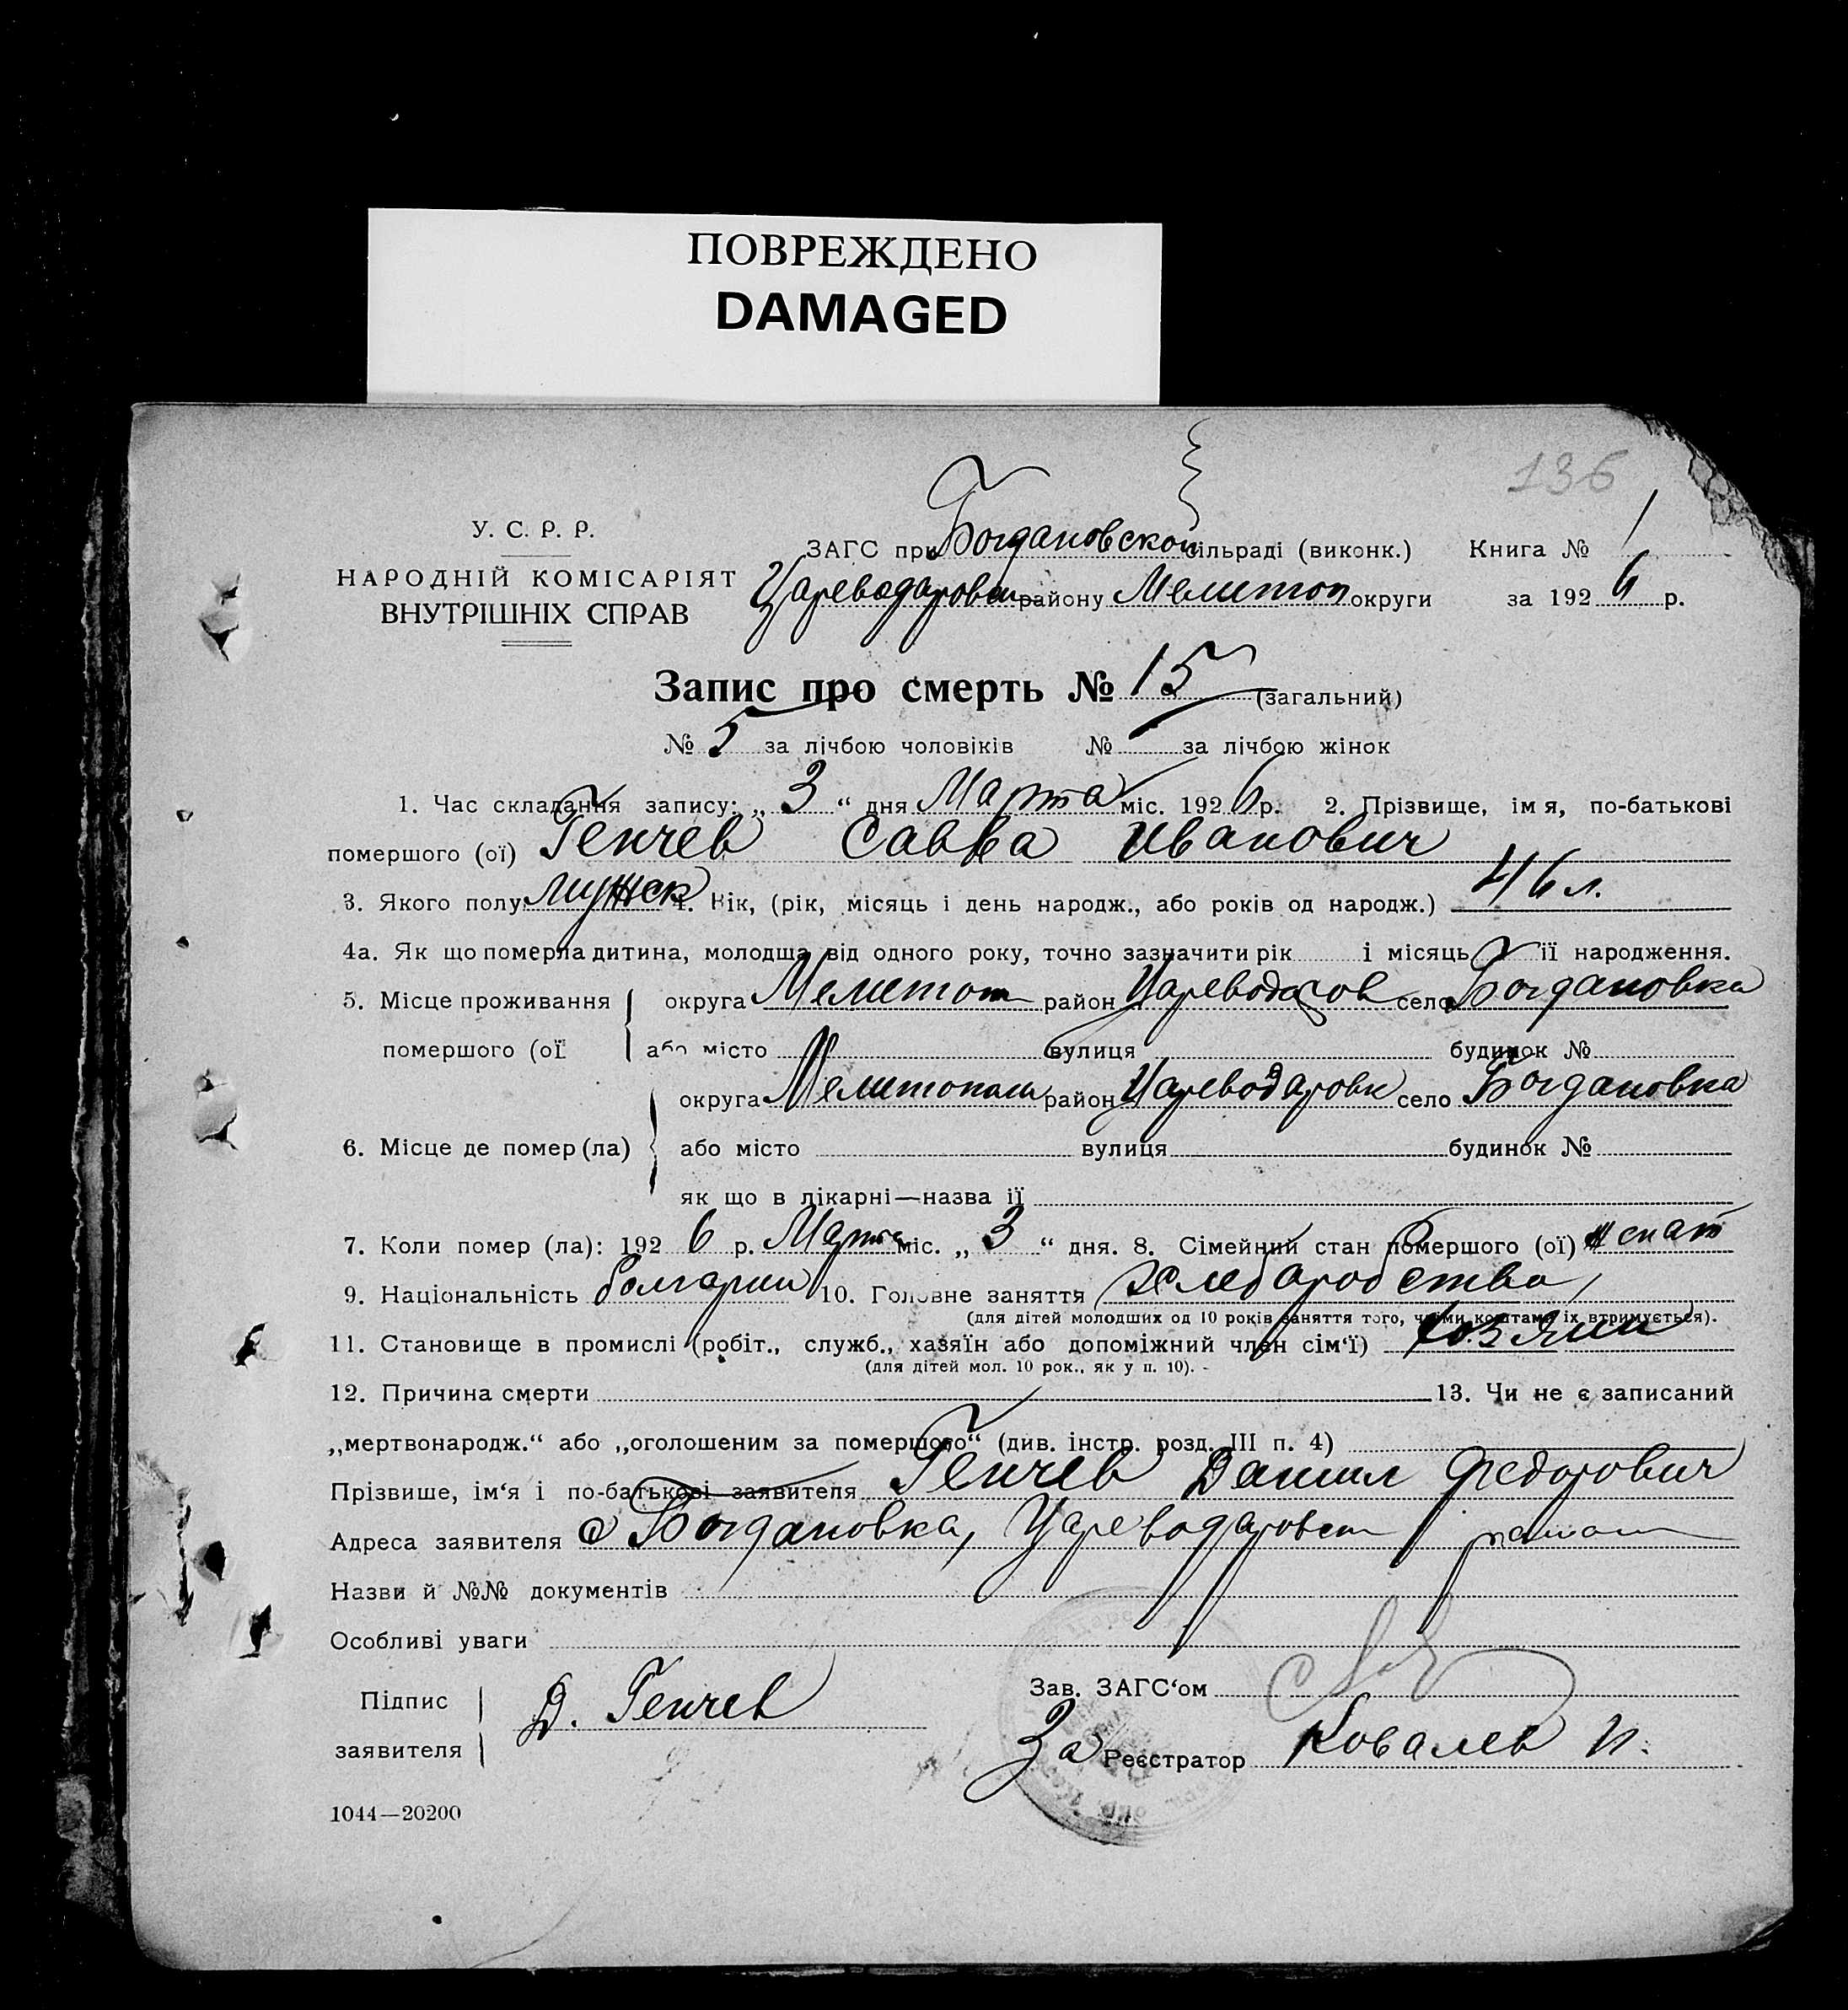 ПОВРЕЖДЕНО
DAMAGED
136
У. С. Р. Р.
НАРОДНІЙ КОМІСАРІЯТ
ВНУТРІШНІХ СПРАВ
ЗАГС при Богдановской сільраді (виконк.) Книга № 1
Цареводаровск району Мелитоп округи за 1926 р.
Запис про смерть № 15 (загальний)
№ 5 за лічбою чоловіків № за лічбою жінок
1. Час складання запису: „ 3 “ дня Марта міс. 1926 р. 2. Прізвище, імя, по-батькові
помершого (ої) Генчев Савва Иванович
3. Якого полу: мужск 4. Вік, (рік, місяць і день народж., або років од народж.) 46 л.
4а. Як що померла дитина, молодща від одного року, точно зазначити рік і місяць її народження.
5. Місце проживання округа Мелитоп район Цареводаров село Богдановка
помершого (ої або місто вулиця будинок №
округа Мелитополь район Цареводаровк село Богдановка
6. Місце де помер (ла) або місто вулиця будинок №
як що в лікарні—назва її
7. Коли помер (ла): 1926 р. Марта міс. „ 3 “ дня. 8. Сімейний стан помершого (ої) женат
9. Національність болгарин 10. Головне заняття хлебаробства
(для дітей молодших од 10 років заняття того, чиїми коштами їх втримується).
11. Становище в промислі (робіт., служб., хазяїн або допоміжний член сім‘ї) хозяин
(для дітей мол. 10 рок., як у п. 10).
12. Причина смерти 13. Чи не є записаний
„мертвонародж.“ або „оголошеним за помершого“ (див. інстр. розд. III п. 4)
Прізвише, ім‘я і по-батькові заявителя Генчев Данил Федорович
Адреса заявителя с Богдановка, Цареводаровск
Назви й №№ документів
Особливі уваги
Підпис заявителя Д. Генчев
Зав. ЗАГС‘ом
За Реєстратор Ковалев И.
1044—20200